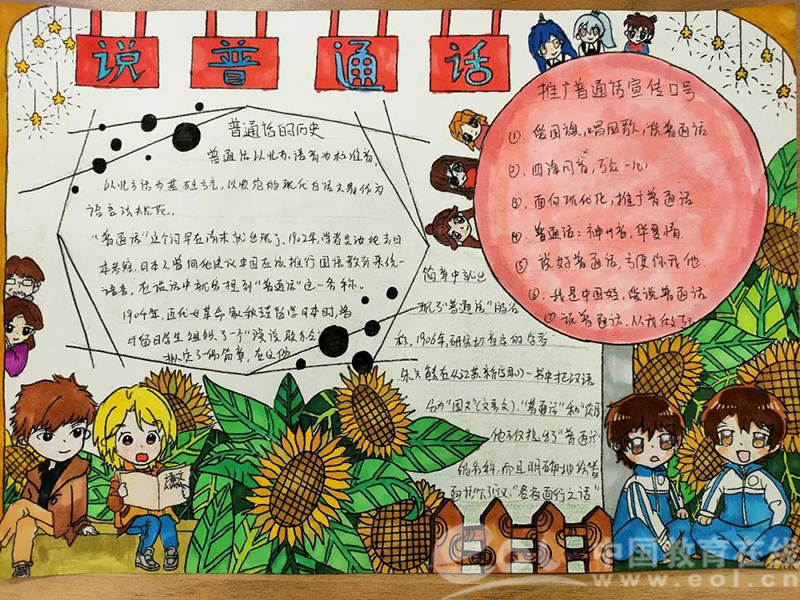 说普通话
普通话的历史
普通话以北京语音为标准音,
以北方话为基础方言,以典范的现代白话文著作为
语言法规范。
"普通话"这个词早在清末就出现了。1902年,学者吴汝纶去日
本考察,日本人曾向他建议中国应该推行国语教育来统一
语言,在谈话中就曾提到"普通话"这一名称。
1904年,近代女革命家秋瑾留学日本时,曾
与留日学生组织了一个"演说联系会",
拟定了一份简章,在这份
简章中就出
现了"普通话"的名
称,1906年,研究切音字的学者
朱文熊在《江苏新字母》一书中把汉语
分为"国文"(文言文)、"普通话"和"俗语"
他不仅提出了"普通话"
的名称,而且明确地给"普
通话"下定义:"各省通行之话"
推广普通话宣传口号
①、绘国旗,唱国歌,说普通话
②、四海同音,万众一心
③、面向现代化,推广普通话
④、普通话:神州音,华夏情
⑤、说好普通话,方便你我他
⑥、我是中国娃,爱说普通话
⑦说普通话,从我做起
语文
中国教育在线
www.eol.cn